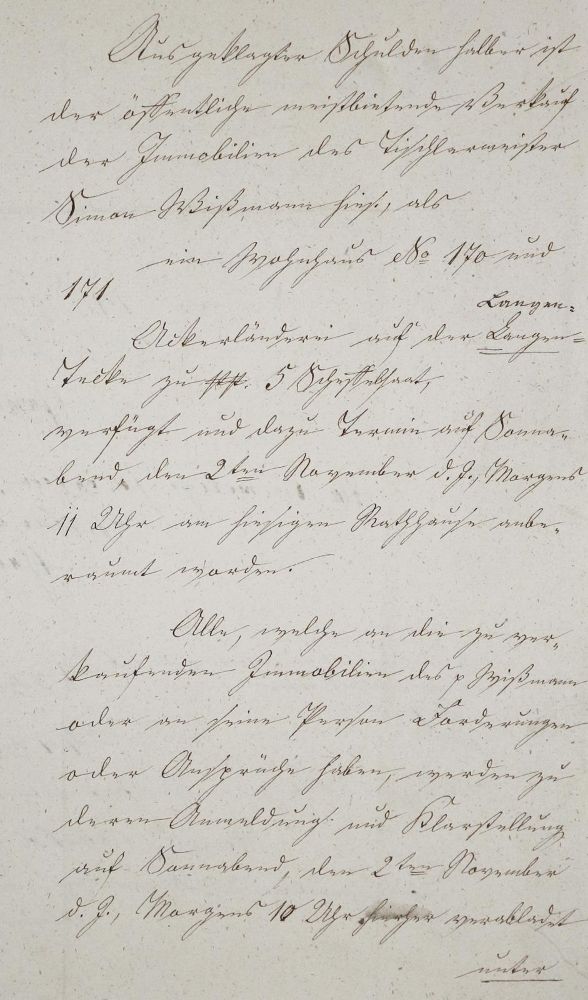 Ausgeklagter Schulden halber ist
der öffentliche meistbietende Verkauf
der Immobilien des Tischlermeister
Simon Wißmann hies., als
ein Wohnhaus No 170 und
171.
Langen-
Ackerländerei auf der Langen-
Tecke zu 5 Scheffelsaat,
verfügt und dazu Termin auf Sonna-
bend, den 2ten November d. J., Morgens
11 Uhr am hiesigen Rathhause anbe-
raumt worden.
Alle, welche an die zu ver-
kaufenden Immobilien des p Wißmann
oder an seine Person Forderungen
oder Ansprüche haben, werden zu
deren Anmeldung und Klarstellung
auf Sonnabend, den 2ten November
d. J., Morgens 10 Uhr hierher verabladet
unter